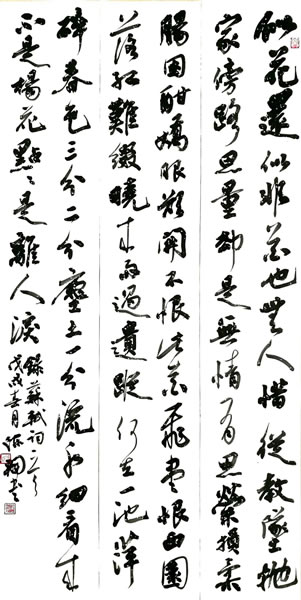 似花還似非花也無人惜從教墜拋
家傍路思量卻是無情有思縈損柔
腸困酣嬌眼欲開不恨此花飛盡恨西園
落紅難綴曉來雨過遺蹤何在一池萍
碎春色三分二分塵土一分流水細看來
不是楊花點〻是離人淚
錄蘇軾詞
戊戌春月